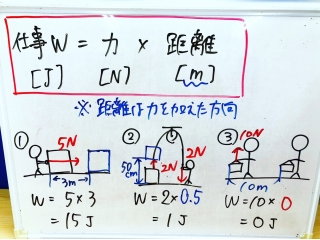 仕事 W = 力 × 距離
[J] [N] [m]
※ 距離は力を加えた方向
① 5N 3m
W = 5×3
= 15 J
② 50cm 2N 2N
W = 2×0.5
= 1 J
③ 10N 10m
W = 10×0
= 0 J